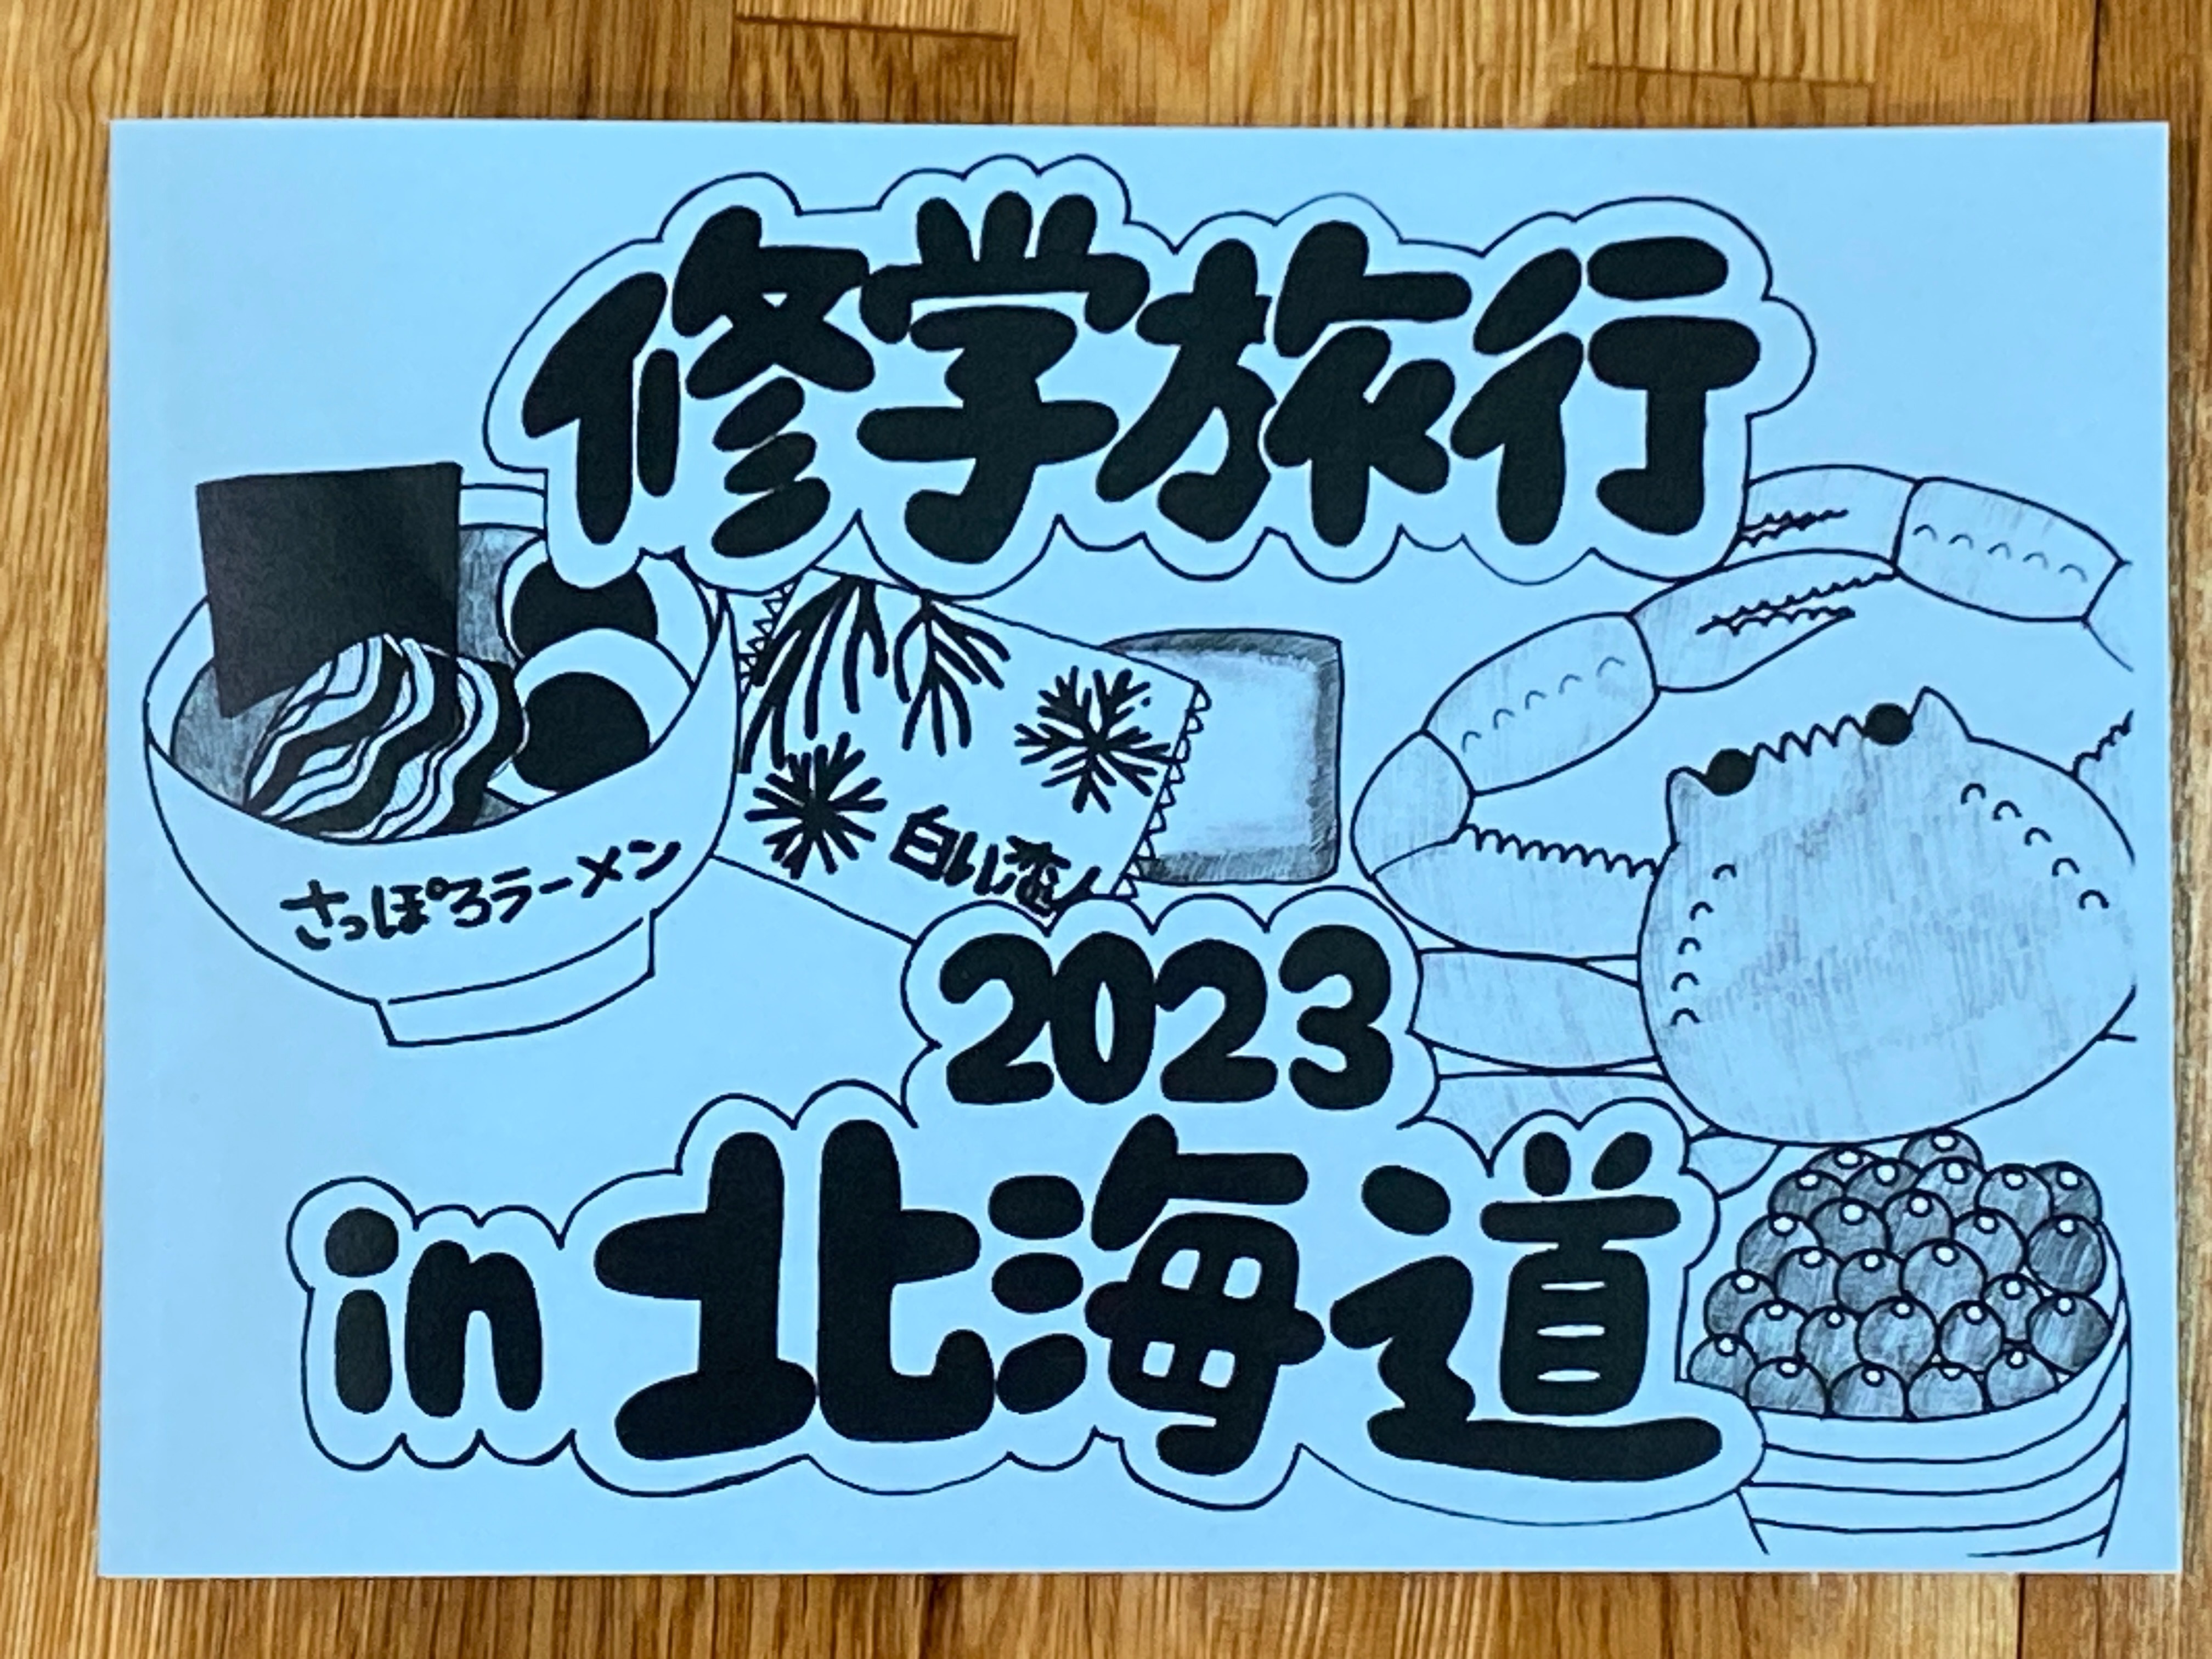 修学旅行
さっぽろラーメン
白い恋人
2023
in 北海道